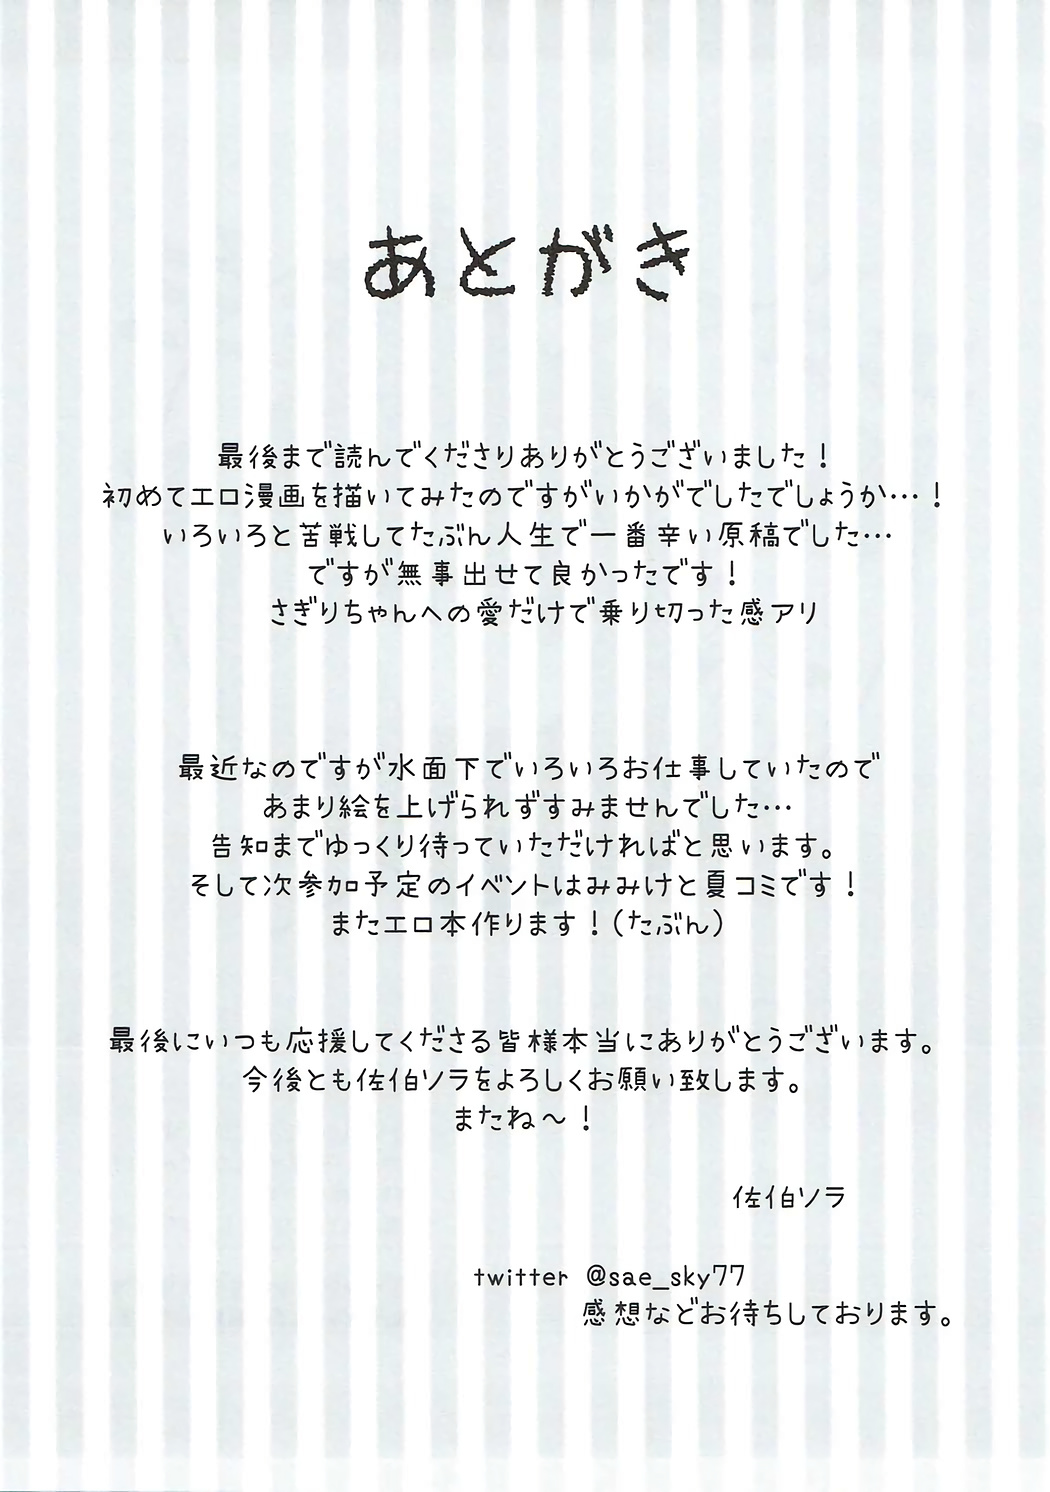 あとがき
最後まで読んでくださりありがとうございました！
初めてエロ漫画を描いてみたのですがいかがでしたでしょうか…！
いろいろと苦戦してたぶん人生で一番辛い原稿でした…
ですが無事出せて良かったです！
さぎりちゃんへの愛だけで乗り切った感アリ
最近なのですが水面下でいろいろお仕事していたので
あまり絵を上げられずすみませんでした…
告知までゆっくり待っていただければと思います。
そして次参加予定のイベントはみみけと夏コミです！
またエロ本作ります！（たぶん）
最後にいつも応援してくださる皆様本当にありがとうございます。
今後とも佐伯ソラをよろしくお願い致します。
またね～！
佐伯ソラ
twitter @sae_sky77
感想などお待ちしております。